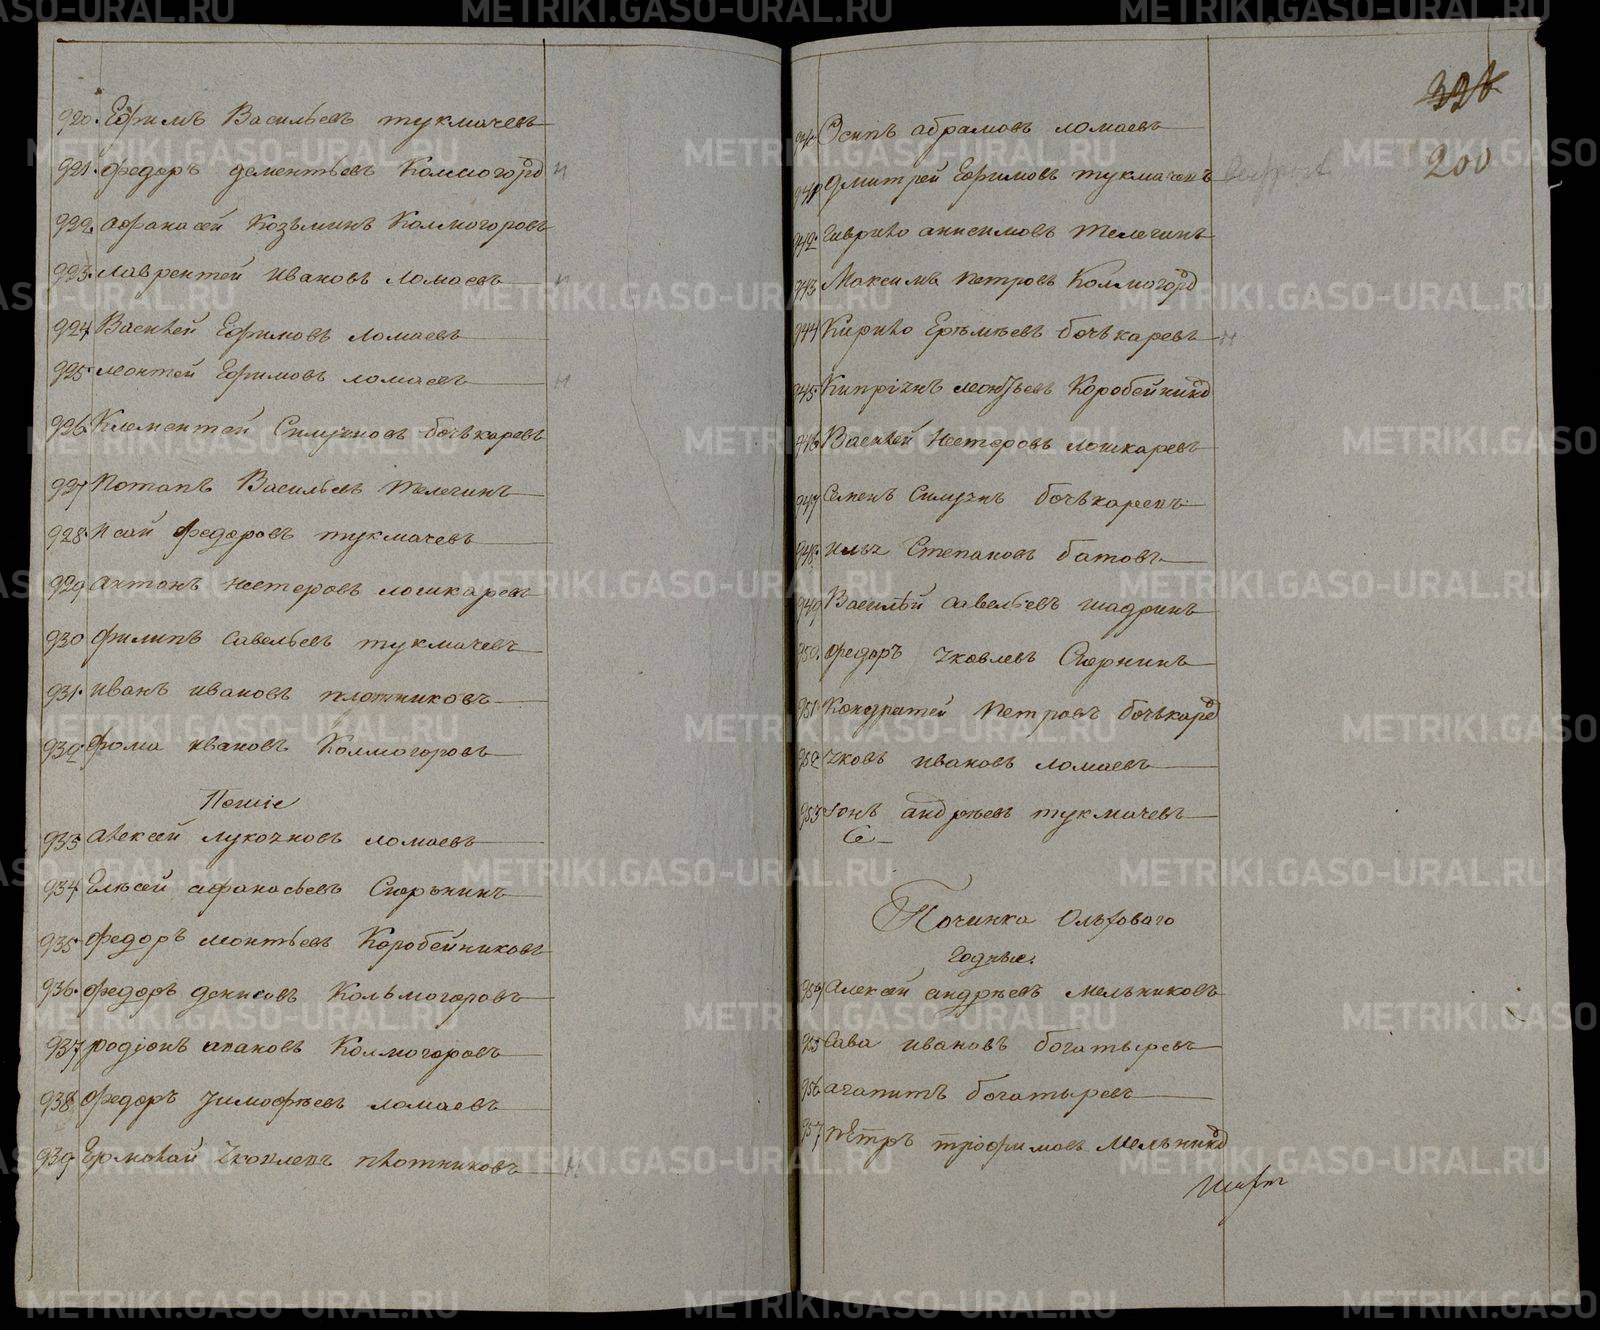 920. Ефимъ Васильевъ тукмачевъ
921. федоръ дементьевъ Колмогоровъ н
922. афанасей Козьминъ Колмогоровъ
923. лаврентей ивановъ ломаевъ н
924 Василей Ефимовъ ломаевъ
925. леонтей Ефимовъ ломаевъ н
926 Клементей Симуновъ бочькаревъ
927 Потапъ Васильевъ телегинъ
928. исай федоровъ тукмачевъ
929 антонъ нестеровъ лошкаревъ
930 филипъ савельевъ тукмачевъ
931. иванъ ивановъ плотниковъ
932. фома ивановъ Колмогоровъ
Пешіе
933 алексей лукояновъ ломаевъ
934. Елисей афанасьевъ Скорынинъ
935. федоръ леонтьевъ Коробейниковъ
936. федоръ денисовъ Кольмогоровъ
937 родіонъ Колмогоровъ
938 федоръ тимофеевъ ломаевъ
939 Ермолай Яковлевъ плотниковъ н
328
200
940 Осипъ абрамовъ ломаевъ
941 Дмитрей Ефимовъ тукмачевъ
942. гаврило анисимовъ телегинъ
943 Максимъ петровъ Колмогоровъ
944 Кирило Еремеевъ бочькаревъ н
945. Кипріянъ леонтьевъ Коробейников
946. Василей нестеровъ лошкаревъ
947 Семенъ бочькаревъ
948. илья Степановъ батовъ
949 Василей савельевъ шадринъ
950. федоръ Яковлевъ Скорнинъ
951 Кондратей петровъ бочькарев
952 Яковъ ивановъ ломаевъ
953 іонъ андреевъ тукмачевъ
Починка Ольховаго
годные.
954 алексей андреевъ мельниковъ
955 Сава ивановъ богатыревъ
956 агапитъ богатыревъ
957 петръ трофимовъ мельников
METRIKI.GASO-URAL.RU